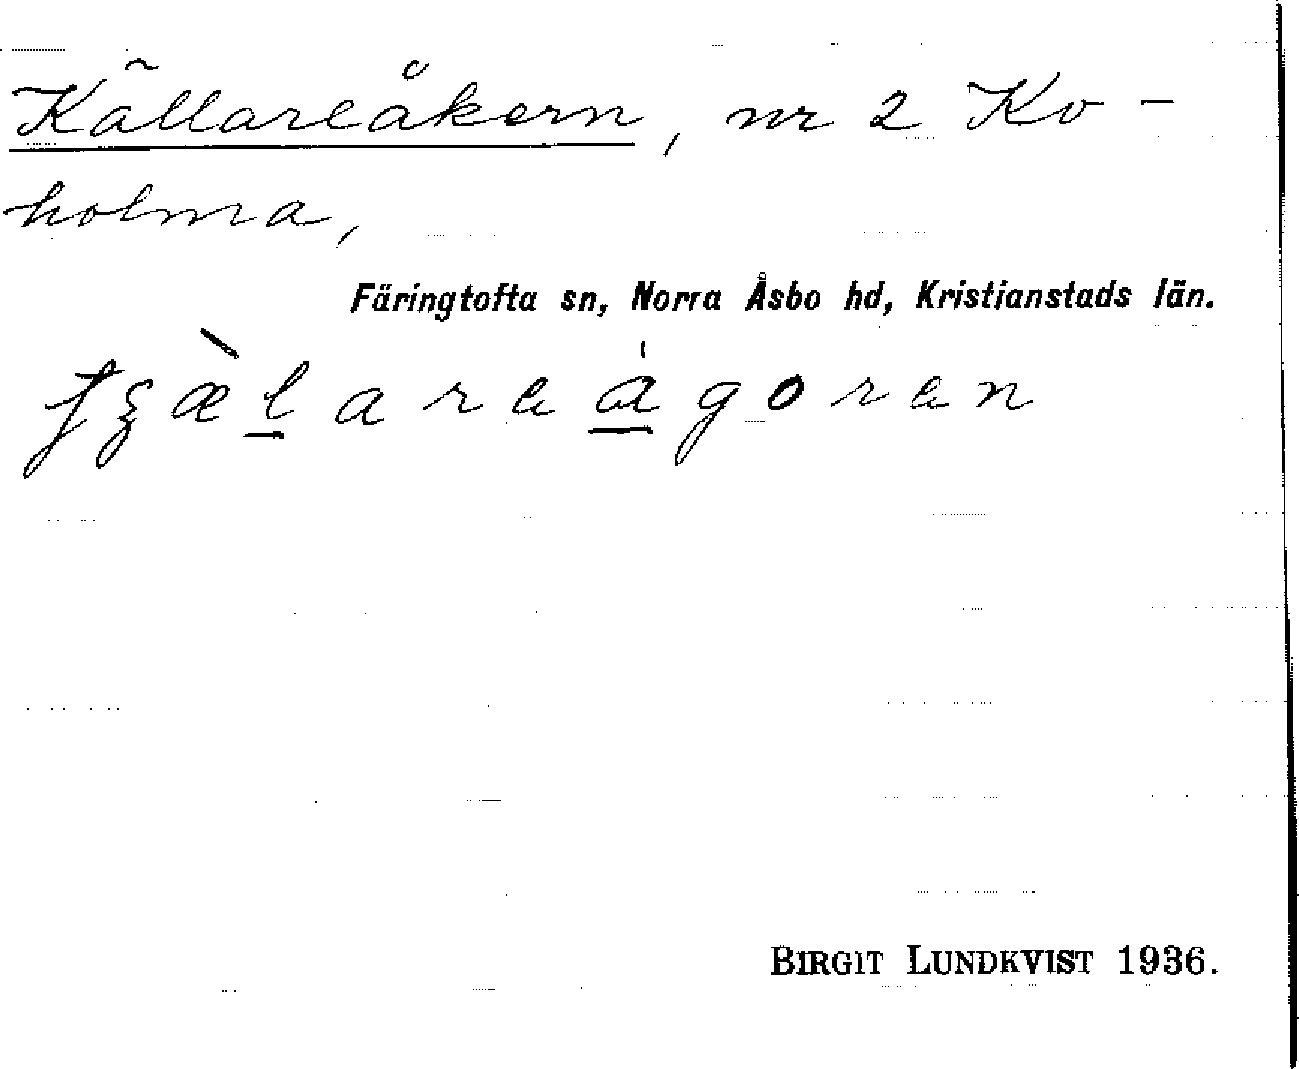 Källareåkern, nr 2 Ko-
holma,
Färingtofta sn, Norra Åsbo hd, Kristianstads län.
BIRGIT LUNDKVIST 1936.